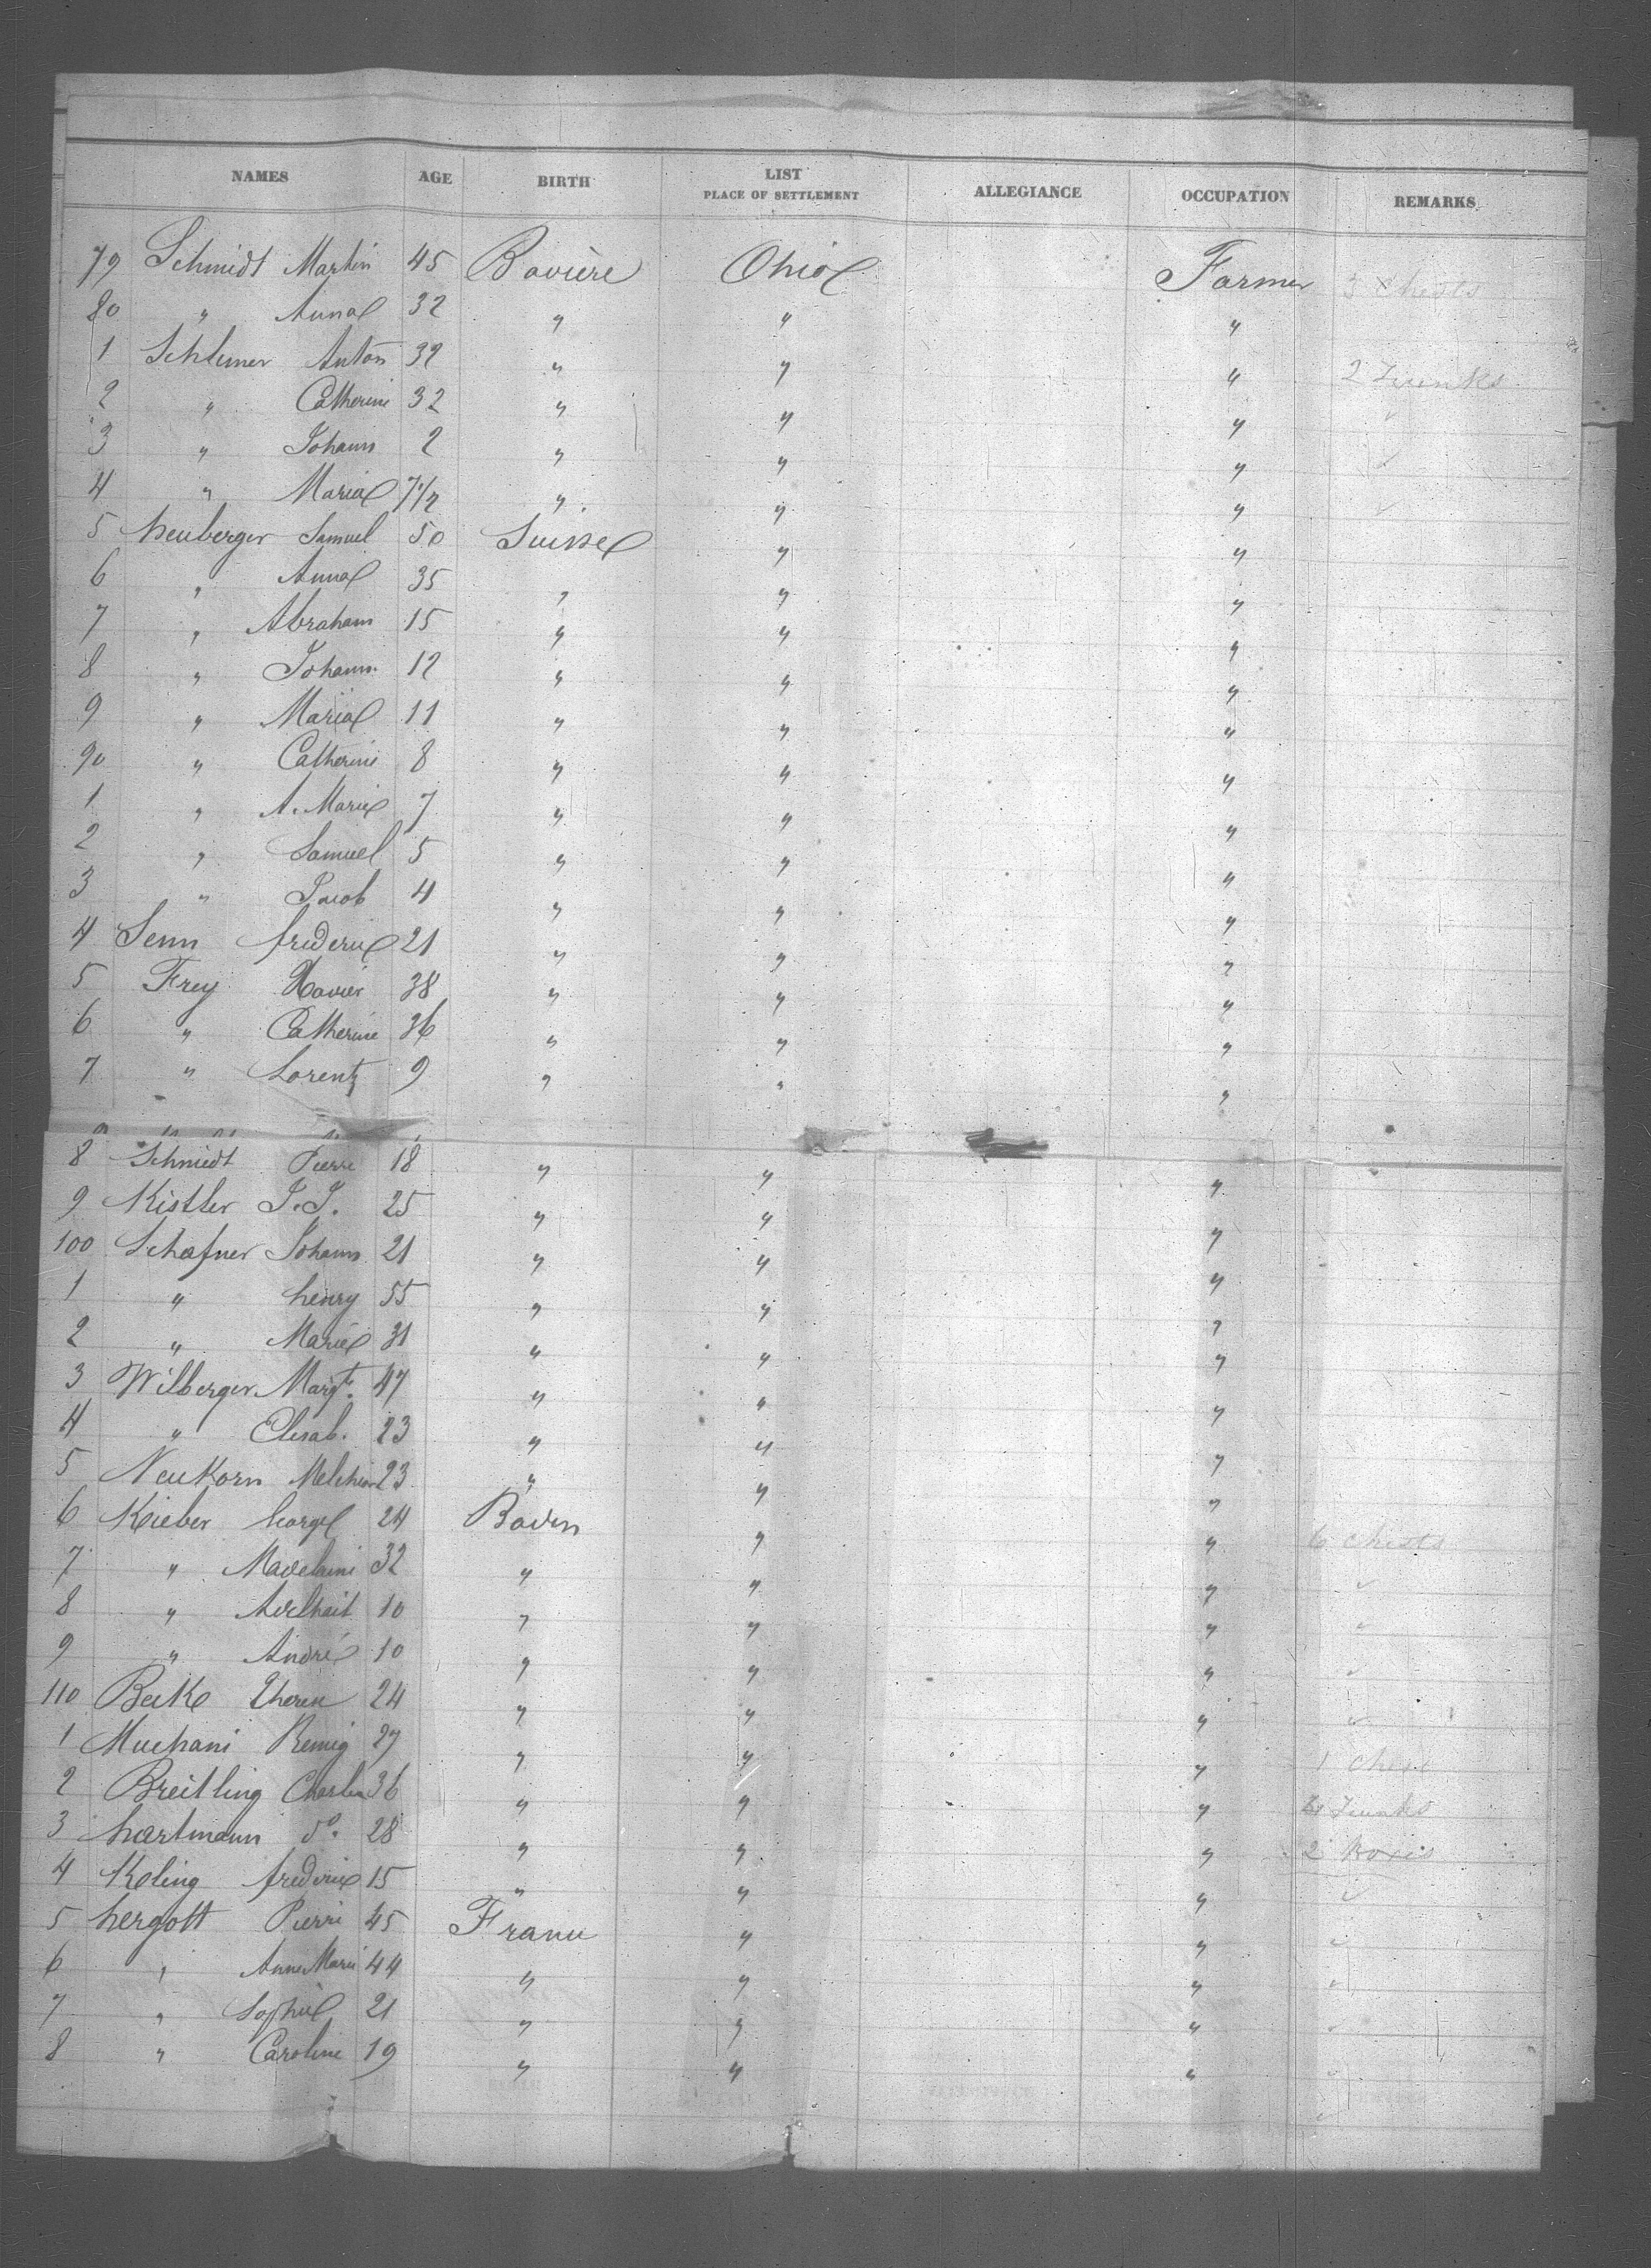 NAMES AGE BIRTH LIST PLACE OF SETTLEMENT ALLEGIANCE OCCUPATION REMARKS
79 Schmidt Martin 45 Bavière Ohio Farmer 3 Chests
80 " Anna 32 " " "
1 Anton 32 " " " 2 Trunks
2 " Catherine 32 " " "
3 " Johann 2 " " "
4 " Maria " " "
5 heuberger Samuel 50 Suisse " "
6 " Anna 35 " " "
7 " Abraham 15 " " "
8 " Johann 12 " " "
9 " Maria 11 " " "
90 " Catherine 8 " " "
1 " A. Marie 7 " " "
2 " Samuel 5 " " "
3 " Jacob 4 " " "
4 Senn frederic 21 " " "
5 Frey Xavier 38 " " "
6 " Catherine 36 " " "
7 " Lorentz 9 " " "
8 Schmidt Pierre 18 " " "
9 Kistler J. J. 25 " " "
100 Schafner Johann 21 " " "
1 " henry 55 " " "
2 " Marie 31 " " "
3 Wilberger Margt. 47 " " "
4 " Elisab. 23 " " "
5 Neukorn Melchior 23 " " "
6 Kieber George 24 Baden " " 6 Chests
7 " Madelaine 32 " " "
8 " Adelhait 10 " " "
9 " André 10 " " "
110 24 " " "
1 Remig 27 " " " 1 Chest
2 Breitling Charles 36 " " " Trunks
3 hartmann do. 28 " " " 2 Boxes
4 Koling frederic 15 " " "
5 hergott Pierre 45 France " "
6 " Anne Marie 44 " " "
7 " Sophie 21 " " "
8 " Caroline 19 " " "